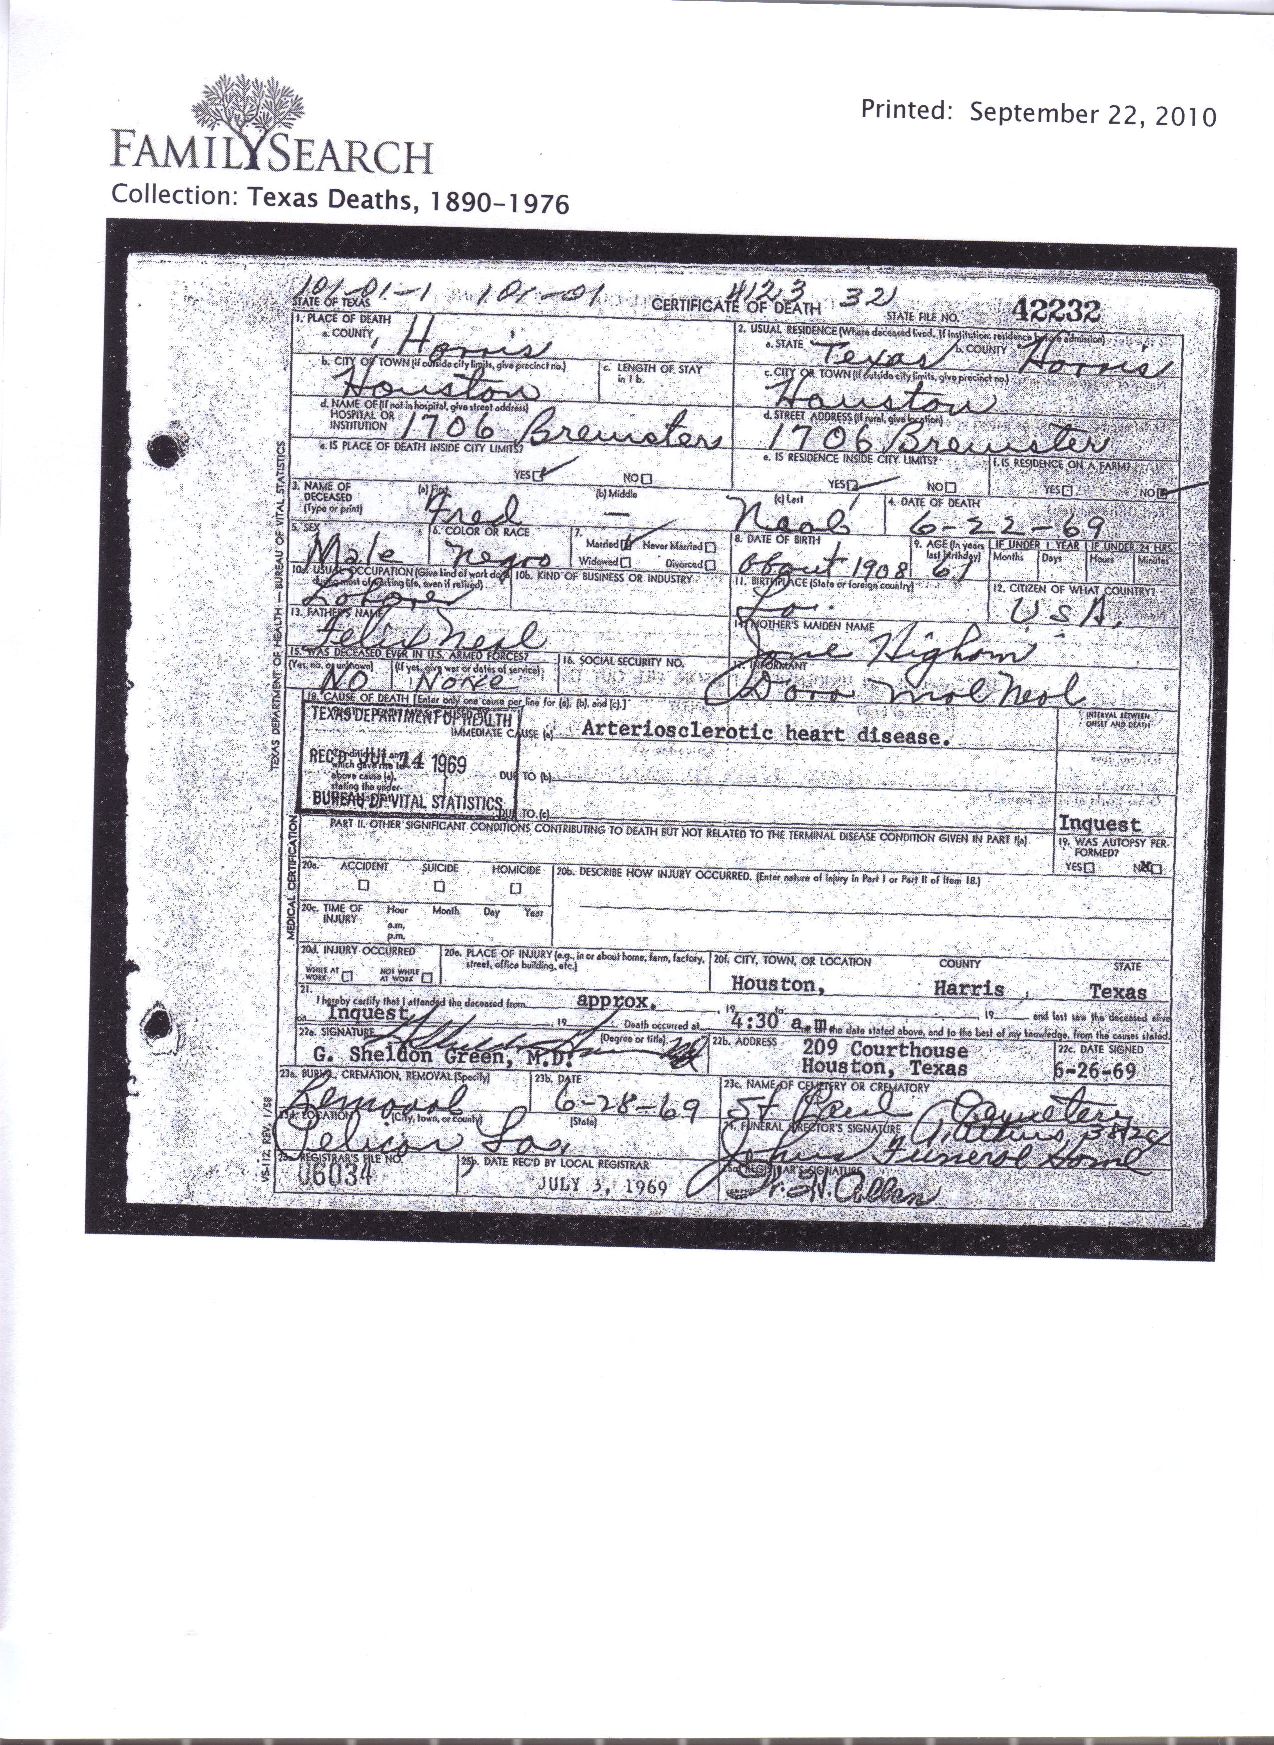 Printed: September 22, 2010
FAMILYSEARCH
Collection: Texas Deaths, 1890-1976
101-01-1 101-01 4123 32
STATE OF TEXAS CERTIFICATE OF DEATH STATE FILE NO. 42232
1. PLACE OF DEATH
a. COUNTY Harris
2. USUAL RESIDENCE (Where deceased lived. If institution: residence before admission)
a. STATE Texas b. COUNTY Harris
b. CITY OR TOWN (If outside city limits, give precinct no.) Houston
c. LENGTH OF STAY in 1 b.
c. CITY OR TOWN (If outside city limits, give precinct no.) Houston
d. NAME OF (If not in hospital, give street address) HOSPITAL OR INSTITUTION 1706 Brewsters
d. STREET ADDRESS (If rural, give location) 1706 Brewster
e. IS PLACE OF DEATH INSIDE CITY LIMITS? YES NO
e. IS RESIDENCE INSIDE CITY LIMITS? YES NO
f. IS RESIDENCE ON A FARM? YES NO
3. NAME OF DECEASED (Type or print) (a) First Fred (b) Middle — (c) Last Neal
4. DATE OF DEATH 6-22-69
5. SEX Male
6. COLOR OR RACE Negro
7. Married Never Married Widowed Divorced
8. DATE OF BIRTH about 1908
9. AGE (In years last birthday) 61 IF UNDER 1 YEAR Months Days IF UNDER 24 HRS. Hours Minutes
10a. USUAL OCCUPATION (Give kind of work done during most of working life, even if retired)
10b. KIND OF BUSINESS OR INDUSTRY
11. BIRTHPLACE (State or foreign country) La.
12. CITIZEN OF WHAT COUNTRY? U.S.A.
13. FATHER'S NAME Felix Neal
14. MOTHER'S MAIDEN NAME Jane Higham
15. WAS DECEASED EVER IN U.S. ARMED FORCES? (Yes, no, or unknown) (If yes, give war or dates of service) NO None
16. SOCIAL SECURITY NO.
17. INFORMANT Dora Mal Neal
18. CAUSE OF DEATH [Enter only one cause per line for (a), (b), and (c).]
INTERVAL BETWEEN ONSET AND DEATH
TEXAS DEPARTMENT OF HEALTH
IMMEDIATE CAUSE (a) Arteriosclerotic heart disease.
REC'D JUL 14 1969
which gave rise to above cause (a), stating the under-
DUE TO (b)
BUREAU OF VITAL STATISTICS
DUE TO (c)
PART II. OTHER SIGNIFICANT CONDITIONS CONTRIBUTING TO DEATH BUT NOT RELATED TO THE TERMINAL DISEASE CONDITION GIVEN IN PART I(a)
Inquest
19. WAS AUTOPSY PERFORMED? YES NO
20a. ACCIDENT SUICIDE HOMICIDE
20b. DESCRIBE HOW INJURY OCCURRED. (Enter nature of injury in Part I or Part II of Item 18.)
20c. TIME OF INJURY Hour Month Day Year
a.m.
p.m.
20d. INJURY OCCURRED WHILE AT WORK NOT WHILE AT WORK
20e. PLACE OF INJURY (e.g., in or about home, farm, factory, street, office building, etc.)
20f. CITY, TOWN, OR LOCATION COUNTY STATE
Houston, Harris Texas
21. I hereby certify that I attended the deceased from approx. 19 to 19 and last saw the deceased alive
on Inquest 19 Death occurred at 4:30 a.m. the date stated above, and to the best of my knowledge, from the causes stated.
22a. SIGNATURE (Degree or title) G. Sheldon Green, M.D.
22b. ADDRESS 209 Courthouse Houston, Texas
22c. DATE SIGNED 6-26-69
23a. BURIAL, CREMATION, REMOVAL (Specify) Removal
23b. DATE 6-28-69
23c. NAME OF CEMETERY OR CREMATORY St Paul Cemetery
23d. LOCATION (City, town, or county) (State) Pelican La.
24. FUNERAL DIRECTOR'S SIGNATURE
Johns Funeral Home
25a. REGISTRAR'S FILE NO. 06034
25b. DATE REC'D BY LOCAL REGISTRAR JULY 3, 1969
25c. REGISTRAR'S SIGNATURE
TEXAS DEPARTMENT OF HEALTH — BUREAU OF VITAL STATISTICS
MEDICAL CERTIFICATION
VS-112 REV. 1/58